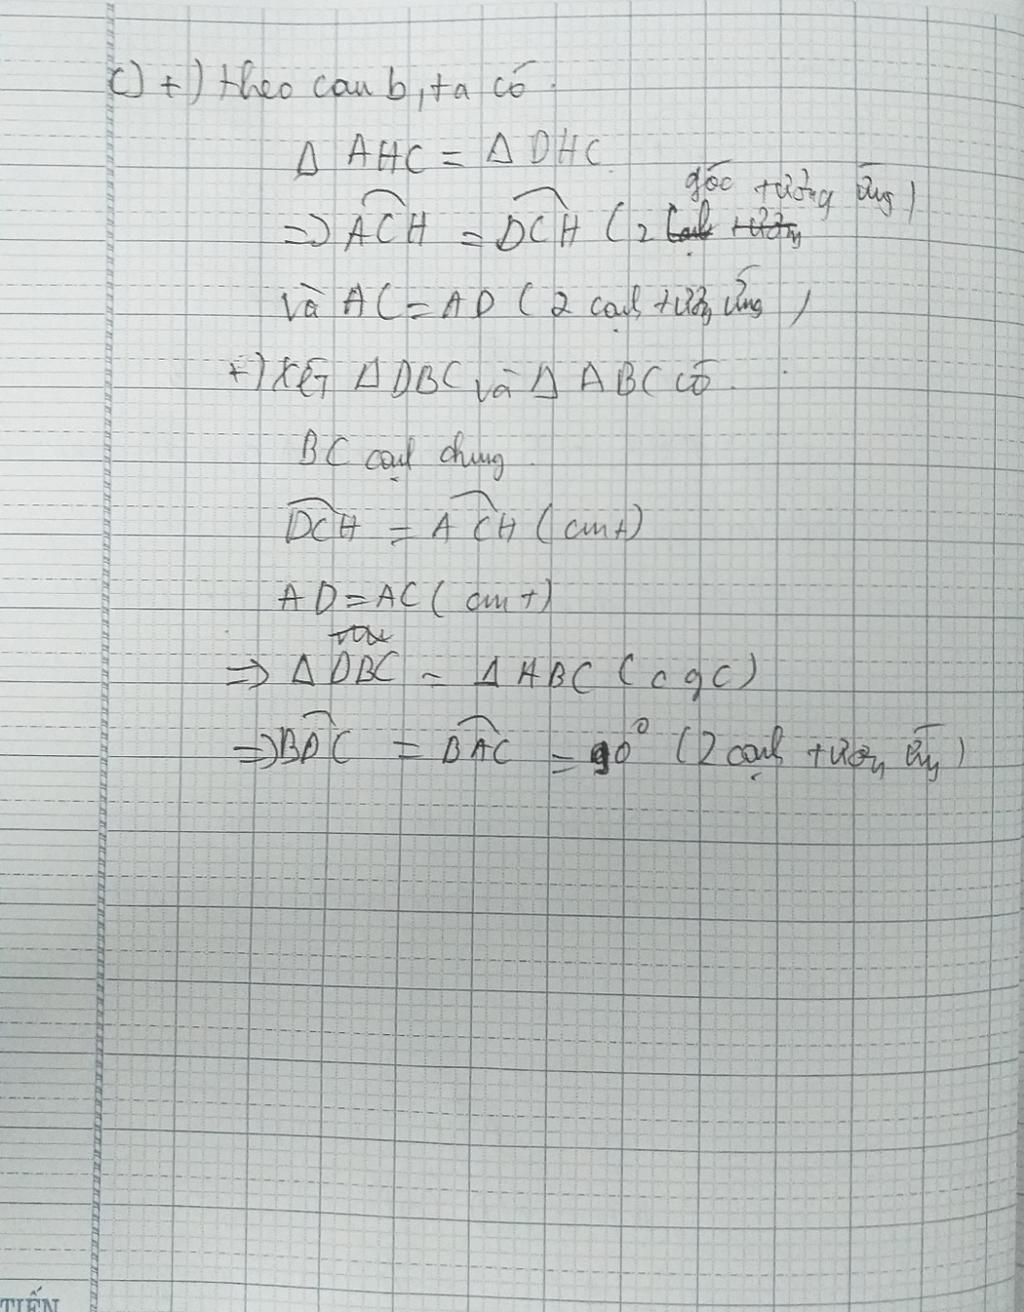 c) +) theo cau b, ta có
Δ AHC = Δ DHC
=> ACH = DCH (2 góc tương ứng)
và AC = AD (2 cạnh tương ứng)
+) Xét Δ DBC và Δ ABC có
BC cạnh chung
DCH = ACH (cmt)
AD = AC (cmt)
=> Δ DBC = Δ ABC (c g c)
=> BDC = BAC = 90° (2 cạnh tương ứng)
TIẾN